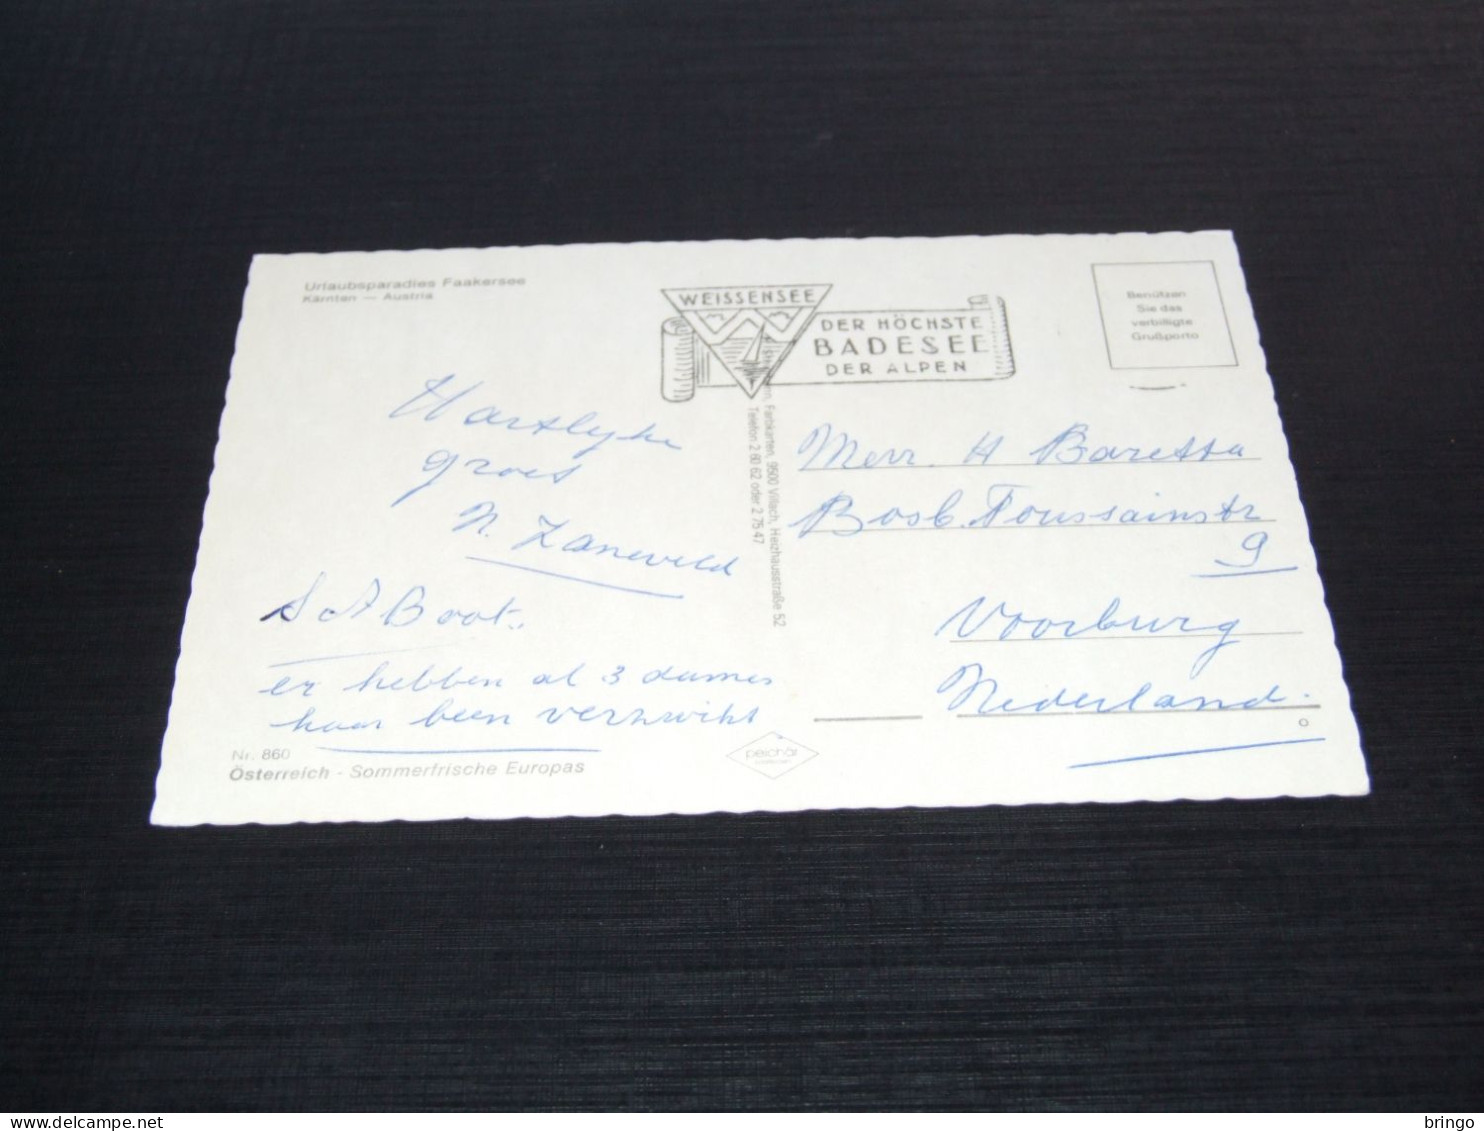 Urlaubsparadies Faakersee
Kärnten — Austria
WEISSENSEE
DER HÖCHSTE
BADESEE
DER ALPEN
Benützen
Sie das
verbilligte
Grußporto
Hartelyke
groet
N. Zaneveld
S A Boot.
er hebben al 3 dames
haar been verzwikt
Nr. 860
Österreich - Sommerfrische Europas
Farbkarten, 9500 Villach, Heizhausstraße 52
Telefon 2 60 62 oder 2 75 47
peichär
H Baretta
Bosb. Toussainstr
9
Voorburg
Nederland.
bringo